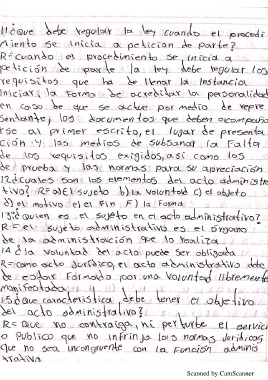 11¿que debe regular la ley cuando el procedi
miento se inicia a peticion de parte?
R=cuando el procedimiento se inicia a
peticion de parte la ley debe regular los
requisitos que ha de llenar la instancia
iniciar, la forma de acreditar la personalidad
en caso de que se actue por medio de repre
sentante, los documentos que deben acompaña
rse al primer escrito, el lugar de presenta
ción y los medios de subsanar la falta
de los requisitos exigidos, así como los
de prueba y las normas para su apreciación
12¿cuales son los elementos del acto administra
tivo? R=a)El sujeto b) la voluntad c) el objeto
d) el motivo e) el Fin F) la forma
13¿quien es el sujeto en el acto administrativo?
R=El sujeto administrativo es el órgano
de la administración que lo realiza
14 ¿la voluntad del acto puede ser obligada
R=como acto juridico, el acto administrativo debe
de estar formado por una voluntad libremente
manifestada
15¿que caracteristica debe tener el objetivo
del acto administrativo?
R= Que no contraiga, ni perturbe el servici
o publico que no infrinja las normas juridicas
que no sea incongruente con la función adminis
trativa
Scanned by CamScanner